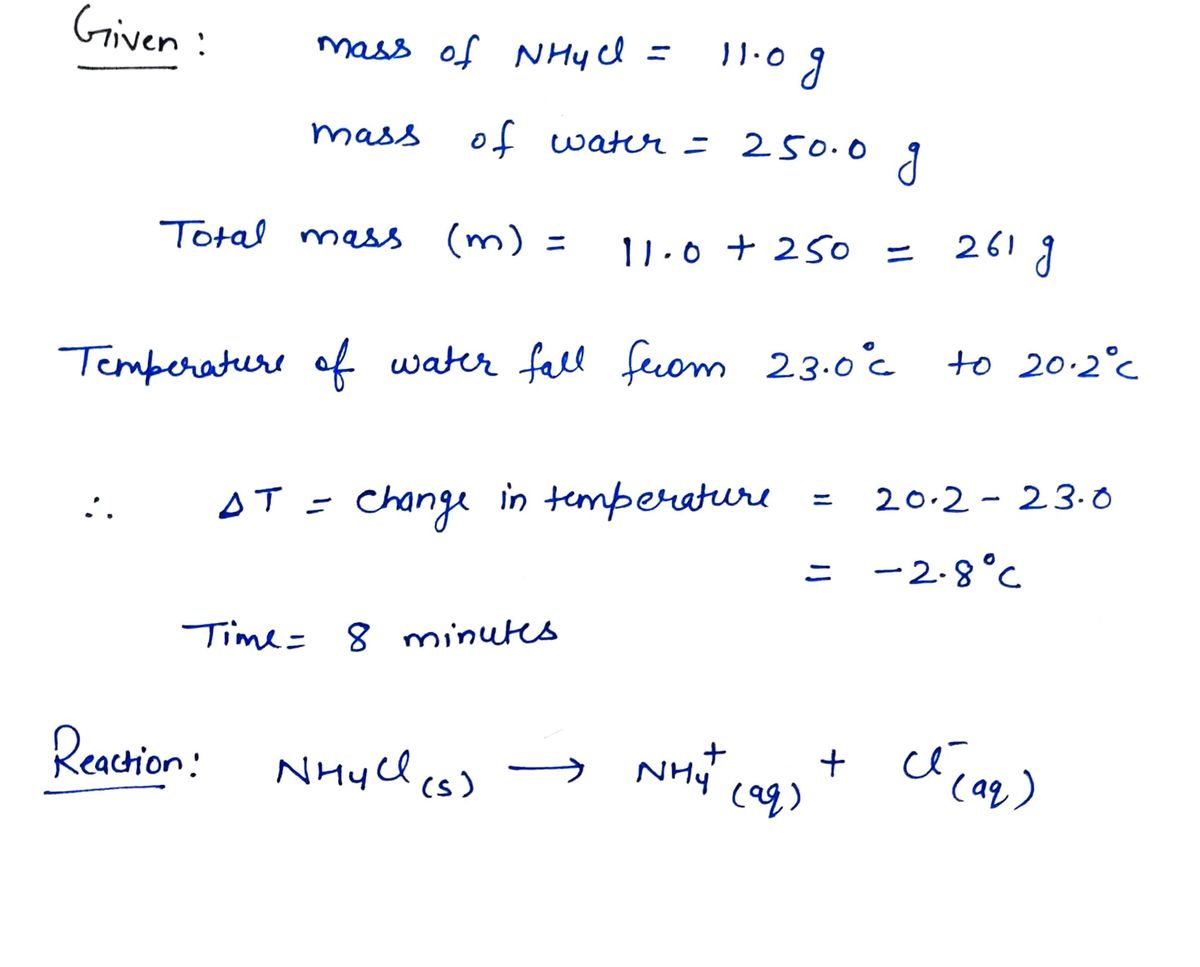 Given : mass of NH4Cl = 11.0 g
mass of water = 250.0 g
Total mass (m) = 11.0 + 250 = 261 g
Temperature of water fall from 23.0°c to 20.2°c
∴ ΔT = change in temperature = 20.2 - 23.0
= -2.8°C
Time = 8 minutes
Reaction: NH4Cl (s) → NH4+ (aq) + Cl- (aq)